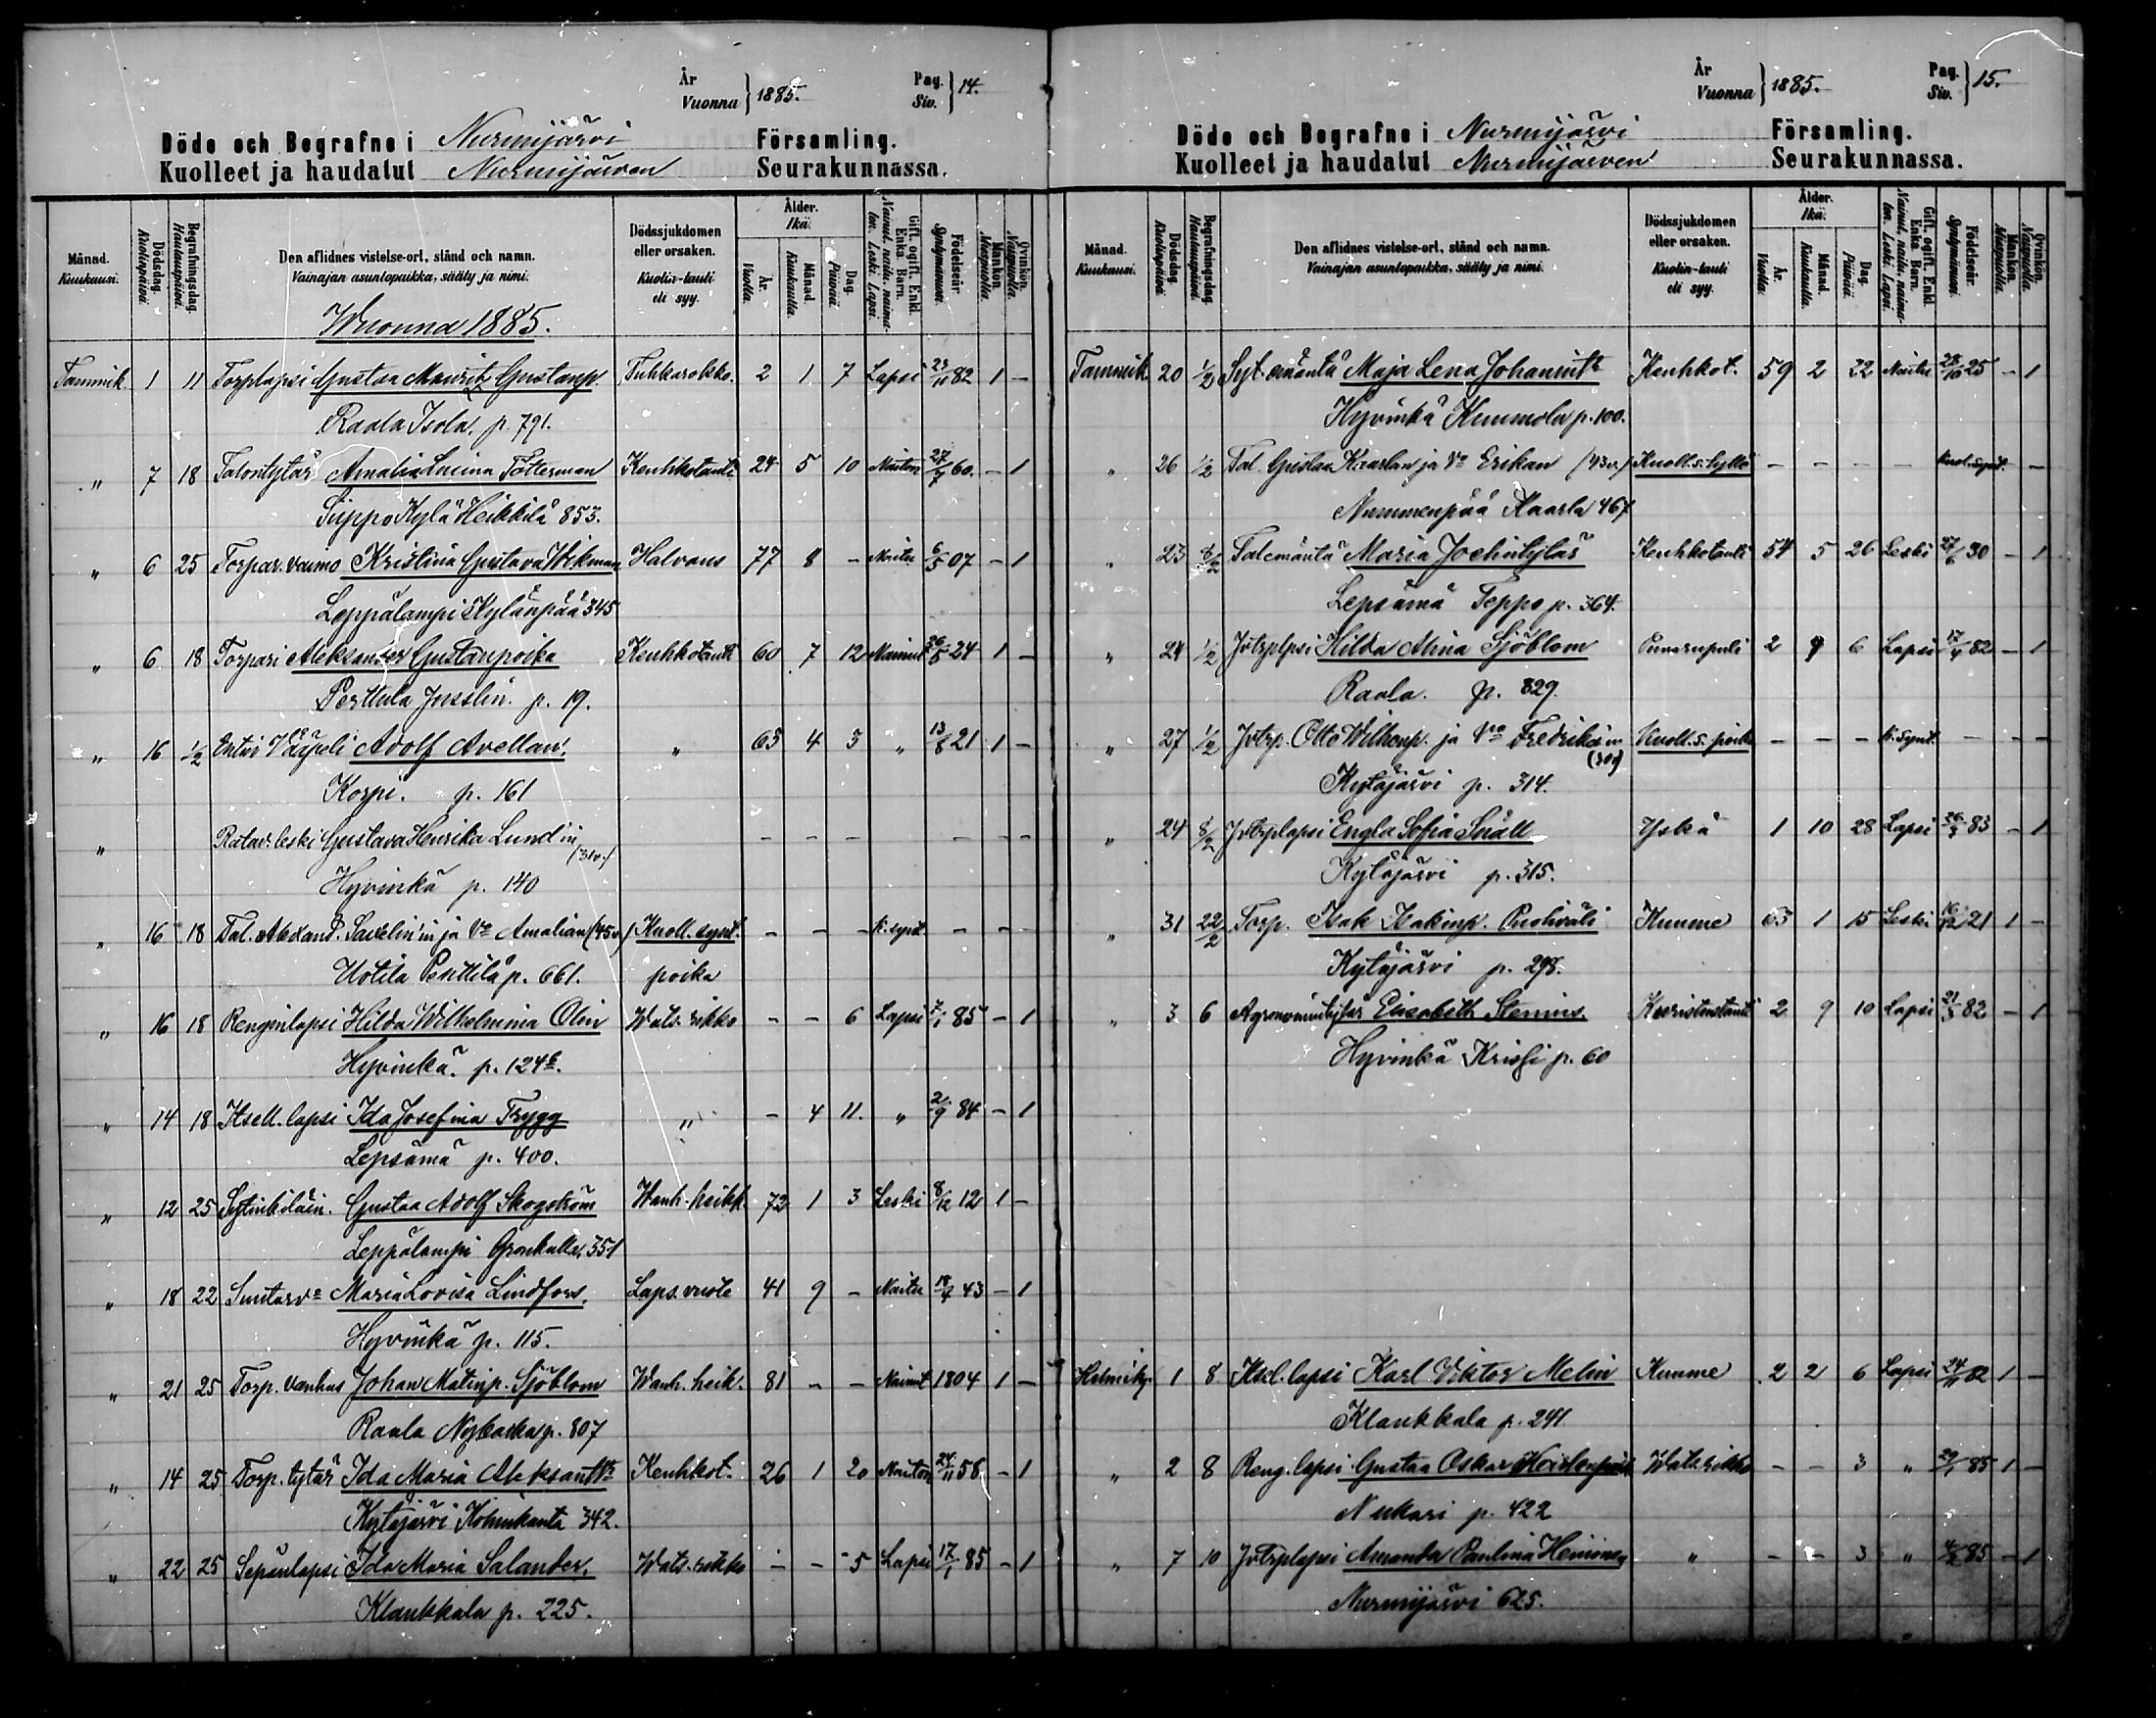 År Vuonna } 1885. Pag. Siv. } 14.
Döde och Begrafne i Nurmijärvi Församling.
Kuolleet ja haudatut Nurmijärven Seurakunnassa.
Månad. Kuukausi. Dödsdag. Kuolinpäivä. Begrafningsdag. Hautauspäivä. Den aflidnes vistelse-ort, stånd och namn. Vainajan asuntopaikka, sääty ja nimi. Dödssjukdomen eller orsaken. Kuolin-tauti eli syy. Ålder. Ikä. År. Vuotta. Månad. Kuukautta. Dag. Päivää. Gift, ogift, Enkl. Enka. Barn. Nainut, naitu, naimaton. Leski. Lapsi. Födelseår Syntymävuosi. Mankön. Miespuolia. Qvinkön. Naispuolia.
Wuonna 1885.
Tammik. 1 11 Torplapsi Gustaa Mauritz Gustanp. Tuhkarokko. 2 1 7 Lapsi 23/11 82 1 -
Raala Isola. p. 791.
" 7 18 Talontytär Amalia Lucina Fötterman Keuhkotauti 24 5 10 Naiton 27/7 60. - 1
Siippo Kylä Heikkilä 853.
" 6 25 Torpar. vaimo Kristina Gustava Wikman Halvaus 77 8 - Naitu 6/5 07 - 1
Leppälampi Kylänpää 345
" 6 18 Torpari Aleksander Gustanpoika Keuhkotauti 60 7 12 Nainut 26/5 24 1 -
Perttula Jusslin. p. 19.
" 16 1/2 Entin Vääpeli Adolf Avellan. " 63 4 3 " 13/8 21 1 -
Korpi. p. 161
" Ratav. leski Gustava Henrika Lund'in (31v.) - - - - - -
Hyvinkä p. 140
" 16 18 Tal. Alexand. Savelin'in ja Vo Amalian (45v.) Kuoll. synt. - - - k. synt. - -
Uotila Penttilä p. 661. poika
" 16 18 Renginlapsi Hilda Wilhelmina Olin Wats. rikko - - 6 Lapsi 7/1 85 - 1
Hyvinkä. p. 124b.
" 14 18 Itsell. lapsi Ida Josefina Trygg " - 4 11. " 2/9 84 - 1
Lepsämä p. 400.
" 12 25 Sytinkiläin. Gustaa Adolf Skogström Wanh. heikk. 72 1 3 Leski 8/12 12 1 -
Leppälampi Gronkulla. 351
" 18 22 Suutarv. Maria Lovisa Lindfors. Laps. vuote 41 9 - Naitu 18/4 43 - 1
Hyvinkä p. 115.
" 21 25 Torp. vanhus Johan Matinp. Sjöblom Wanh. heik. 81 - - Nainut 1804 1 -
Raala Nybacka p. 807
" 14 25 Torp. tytär Ida Maria Aleksantr. Keuhkot. 26 1 20 Naiton 24/11 58 - 1
Kytäjärvi 342.
" 22 25 Sepänlapsi Ida Maria Salander. Wats. rikko - - 5 Lapsi 17/1 85 - 1
Klaukkala p. 225.
År Vuonna } 1885. Pag. Siv. } 15.
Döde och Begrafne i Nurmijärvi Församling.
Kuolleet ja haudatut Nurmijärven Seurakunnassa.
Månad. Kuukausi. Dödsdag. Kuolinpäivä. Begrafningsdag. Hautauspäivä. Den aflidnes vistelse-ort, stånd och namn. Vainajan asuntopaikka, sääty ja nimi. Dödssjukdomen eller orsaken. Kuolin-tauti eli syy. Ålder. Ikä. År. Vuotta. Månad. Kuukautta. Dag. Päivää. Gift, ogift, Enkl. Enka. Barn. Nainut, naitu, naimaton. Leski. Lapsi. Födelseår Syntymävuosi. Mankön. Miespuolia. Qvinkön. Naispuolia.
Tammik 20 1/2 Syt. emäntä Maja Lena Johanintr Keuhkot. 59 2 22 Naitu 28/10 25 - 1
Hyvinkä Kummola p. 100.
" 26 1/2 Tal. Gustaa Kaarlan ja Vo Erikan (43v.) Kuoll. s. tyttö - - - - kuol. synt. -
Nummenpää Kaarla 467
" 23 8/2 Tal. emäntä Maria Jochintytär Keuhkotauti 54 5 26 Leski 27/6 30 - 1
Lepsämä Teppo p. 364.
" 24 1/2 Jvtrplpsi Hilda Alina Sjöblom Punarupuli 2 9 6 Lapsi 17/4 82 - 1
Raala. p. 829.
" 27 1/2 Jvtrp. Otto Wilhenp. ja Vo Fredrika'n (30v) Kuoll. s. poika - - - k. synt. - - -
Kytäjärvi p. 314.
" 24 8/2 Jvtrplapsi Engla Sofia Snäll Yskä 1 10 28 Lapsi 26/2 83 - 1
Kytäjärvi p. 315.
" 31 22/2 Torp. Isak Isakinp. Puoliväli Kuume 63 1 15 Leski 16/12 21 1 -
Kytäjärvi p. 298.
" 3 6 Agronomintytär Elisabeth Stenius Kuristustauti 2 9 10 Lapsi 21/3 82 - 1
Hyvinkä Kriosi p. 60
Helmik. 1 8 Itsel. lapsi Karl Viktor Melin Kuume 2 2 6 Lapsi 24/11 82 1 -
Klaukkala p. 241
" 2 8 Reng. lapsi Gustaa Oskar Wats. rikko - - 3 " 29/1 85 1 -
Nukari p. 422
" 7 10 Jvtrplapsi Amanda Paulina Heinonen " - - 3 " 4/2 85 - 1
Nurmijärvi 625.